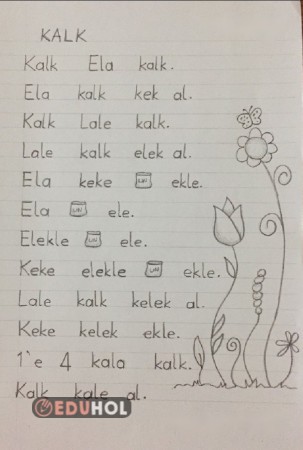 KALK
Kalk Ela kalk.
Ela kalk kek al.
Kalk Lale kalk.
Lale kalk elek al.
Ela keke UN ekle.
Ela UN ele.
Elekle UN ele.
Keke elekle UN ekle.
Lale kalk kelek al.
Keke kelek ekle.
1'e 4 kala kalk.
Kalk kale al.
EDUHOL